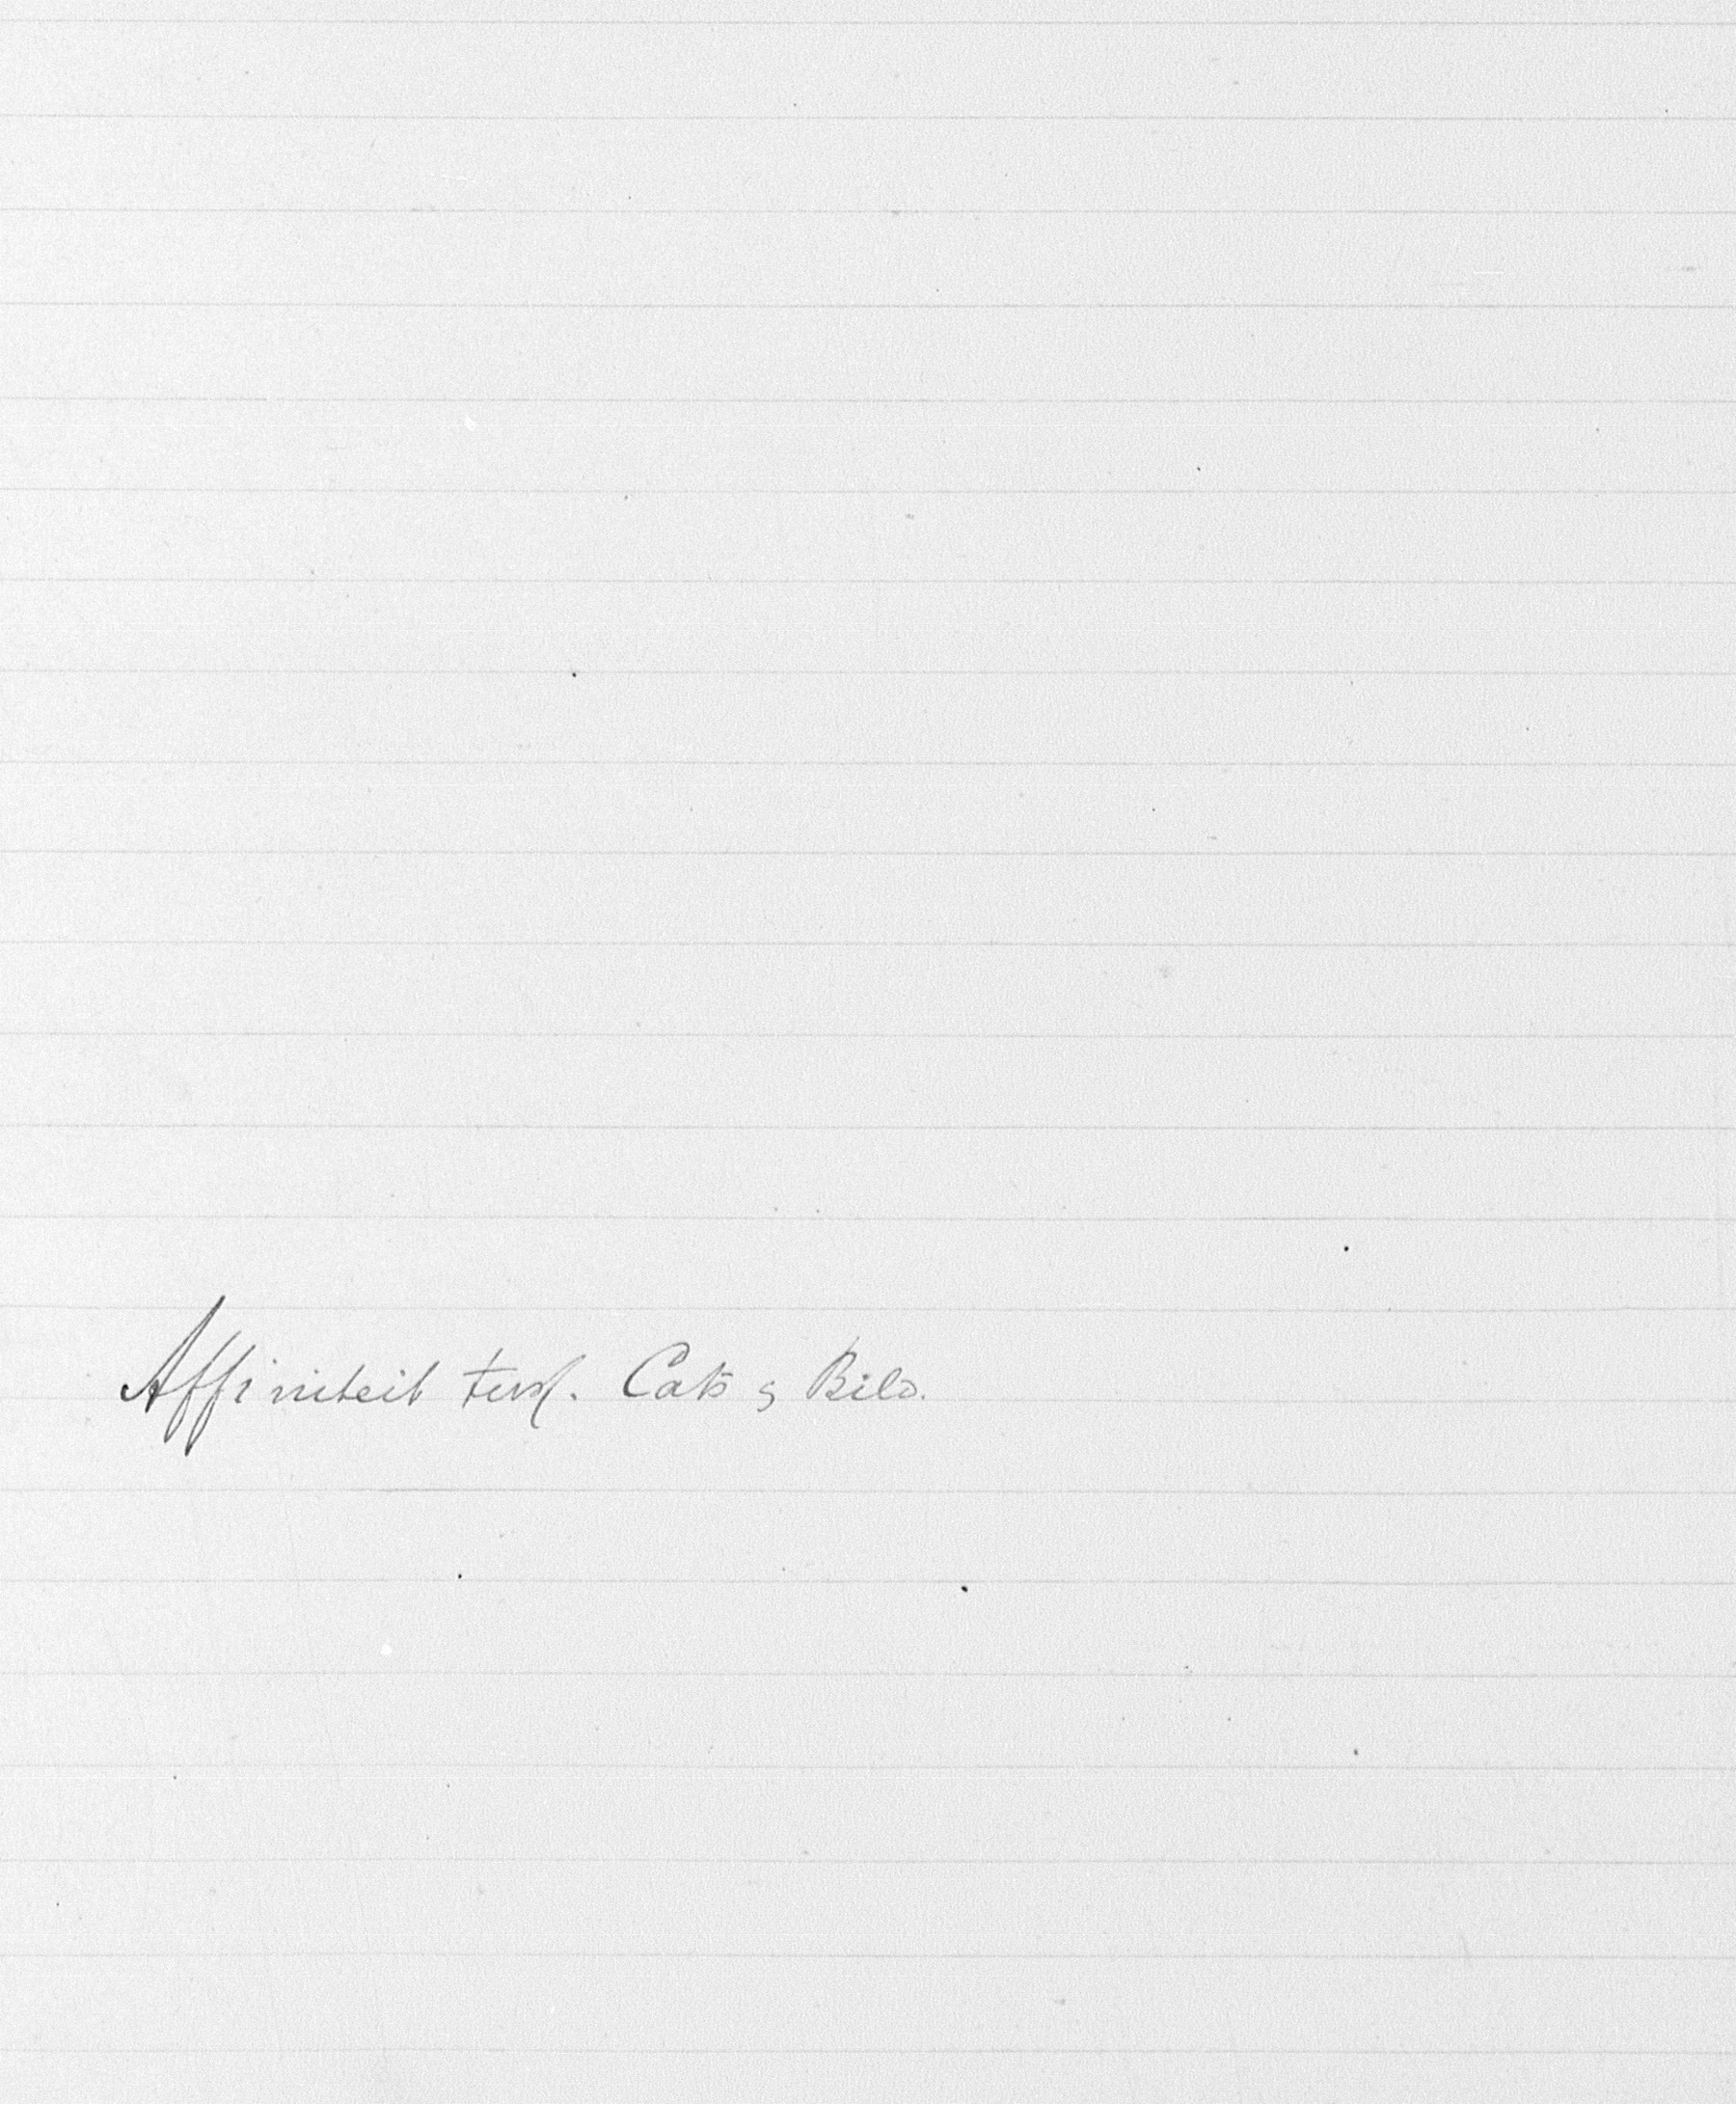 Affiniteit tusch. Cats & Bild.